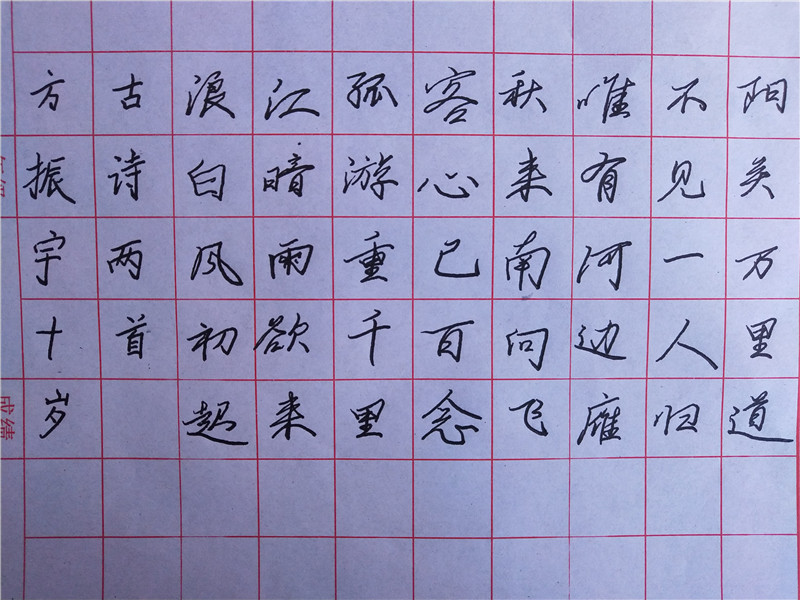 阳关万里道
不见一人归
唯有河边雁
秋来南向飞
客心已百念
孤游重千里
江暗雨欲来
浪白风初起
古诗两首
方振宇十岁
成绩